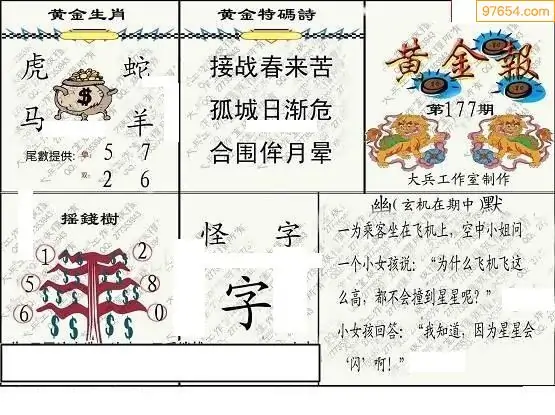 97654.com
黄金生肖
虎 蛇
马 羊
尾數提供: 单 5 7
双 2 6
黄金特碼詩
接战春来苦
孤城日渐危
合围侔月晕
黄金報
第177期
大兵工作室制作
摇錢樹
1 2
5 8
6 0
怪 字
字
幽(玄机在期中 默
一为乘客坐在飞机上，空中小姐问
一个小女孩说：“为什么飞机飞这
么高，都不会撞到星星呢？”
小女孩回答：“我知道，因为星星会
‘闪’啊！”